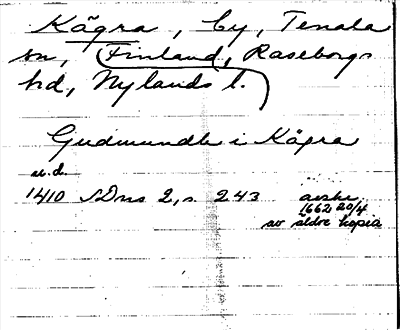 Kägra, by, Tenala
sn, (Finland, Raseborgs
hd, Nylands l.)
Gudmundh i Kägra
u.d.
1410 SDns 2, s. 243 avskr.
1662 20/4
av äldre kopia